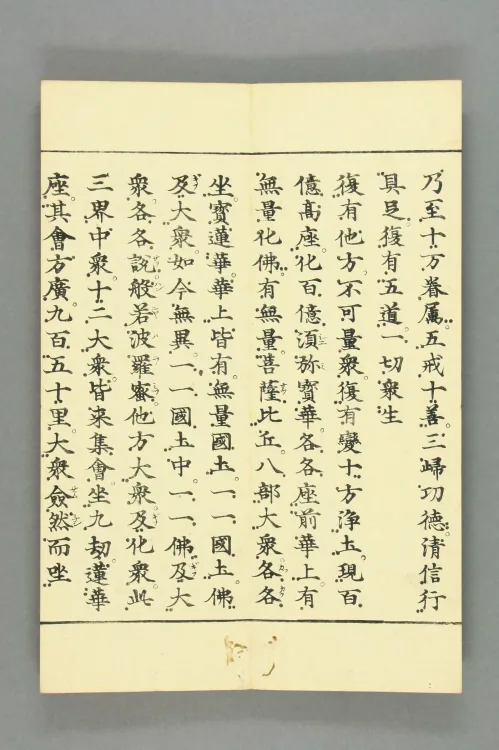 乃至十万眷属五戒十善三歸功德清信行
具足復有五道一切衆生
復有他方不可量衆復有變十方浄土現百
億髙座化百億湏弥寳華各各座前華上有
無量化佛有無量菩薩比丘八部大衆各各
坐寳蓮華華上皆有無量國土一一國土佛
及大衆如今無異一一國土中一一佛及大
衆各各説般若波羅蜜他方大衆及化衆此
三界中衆十二大衆皆来集會坐九劫蓮華
座其會方廣九百五十里大衆僉然而坐